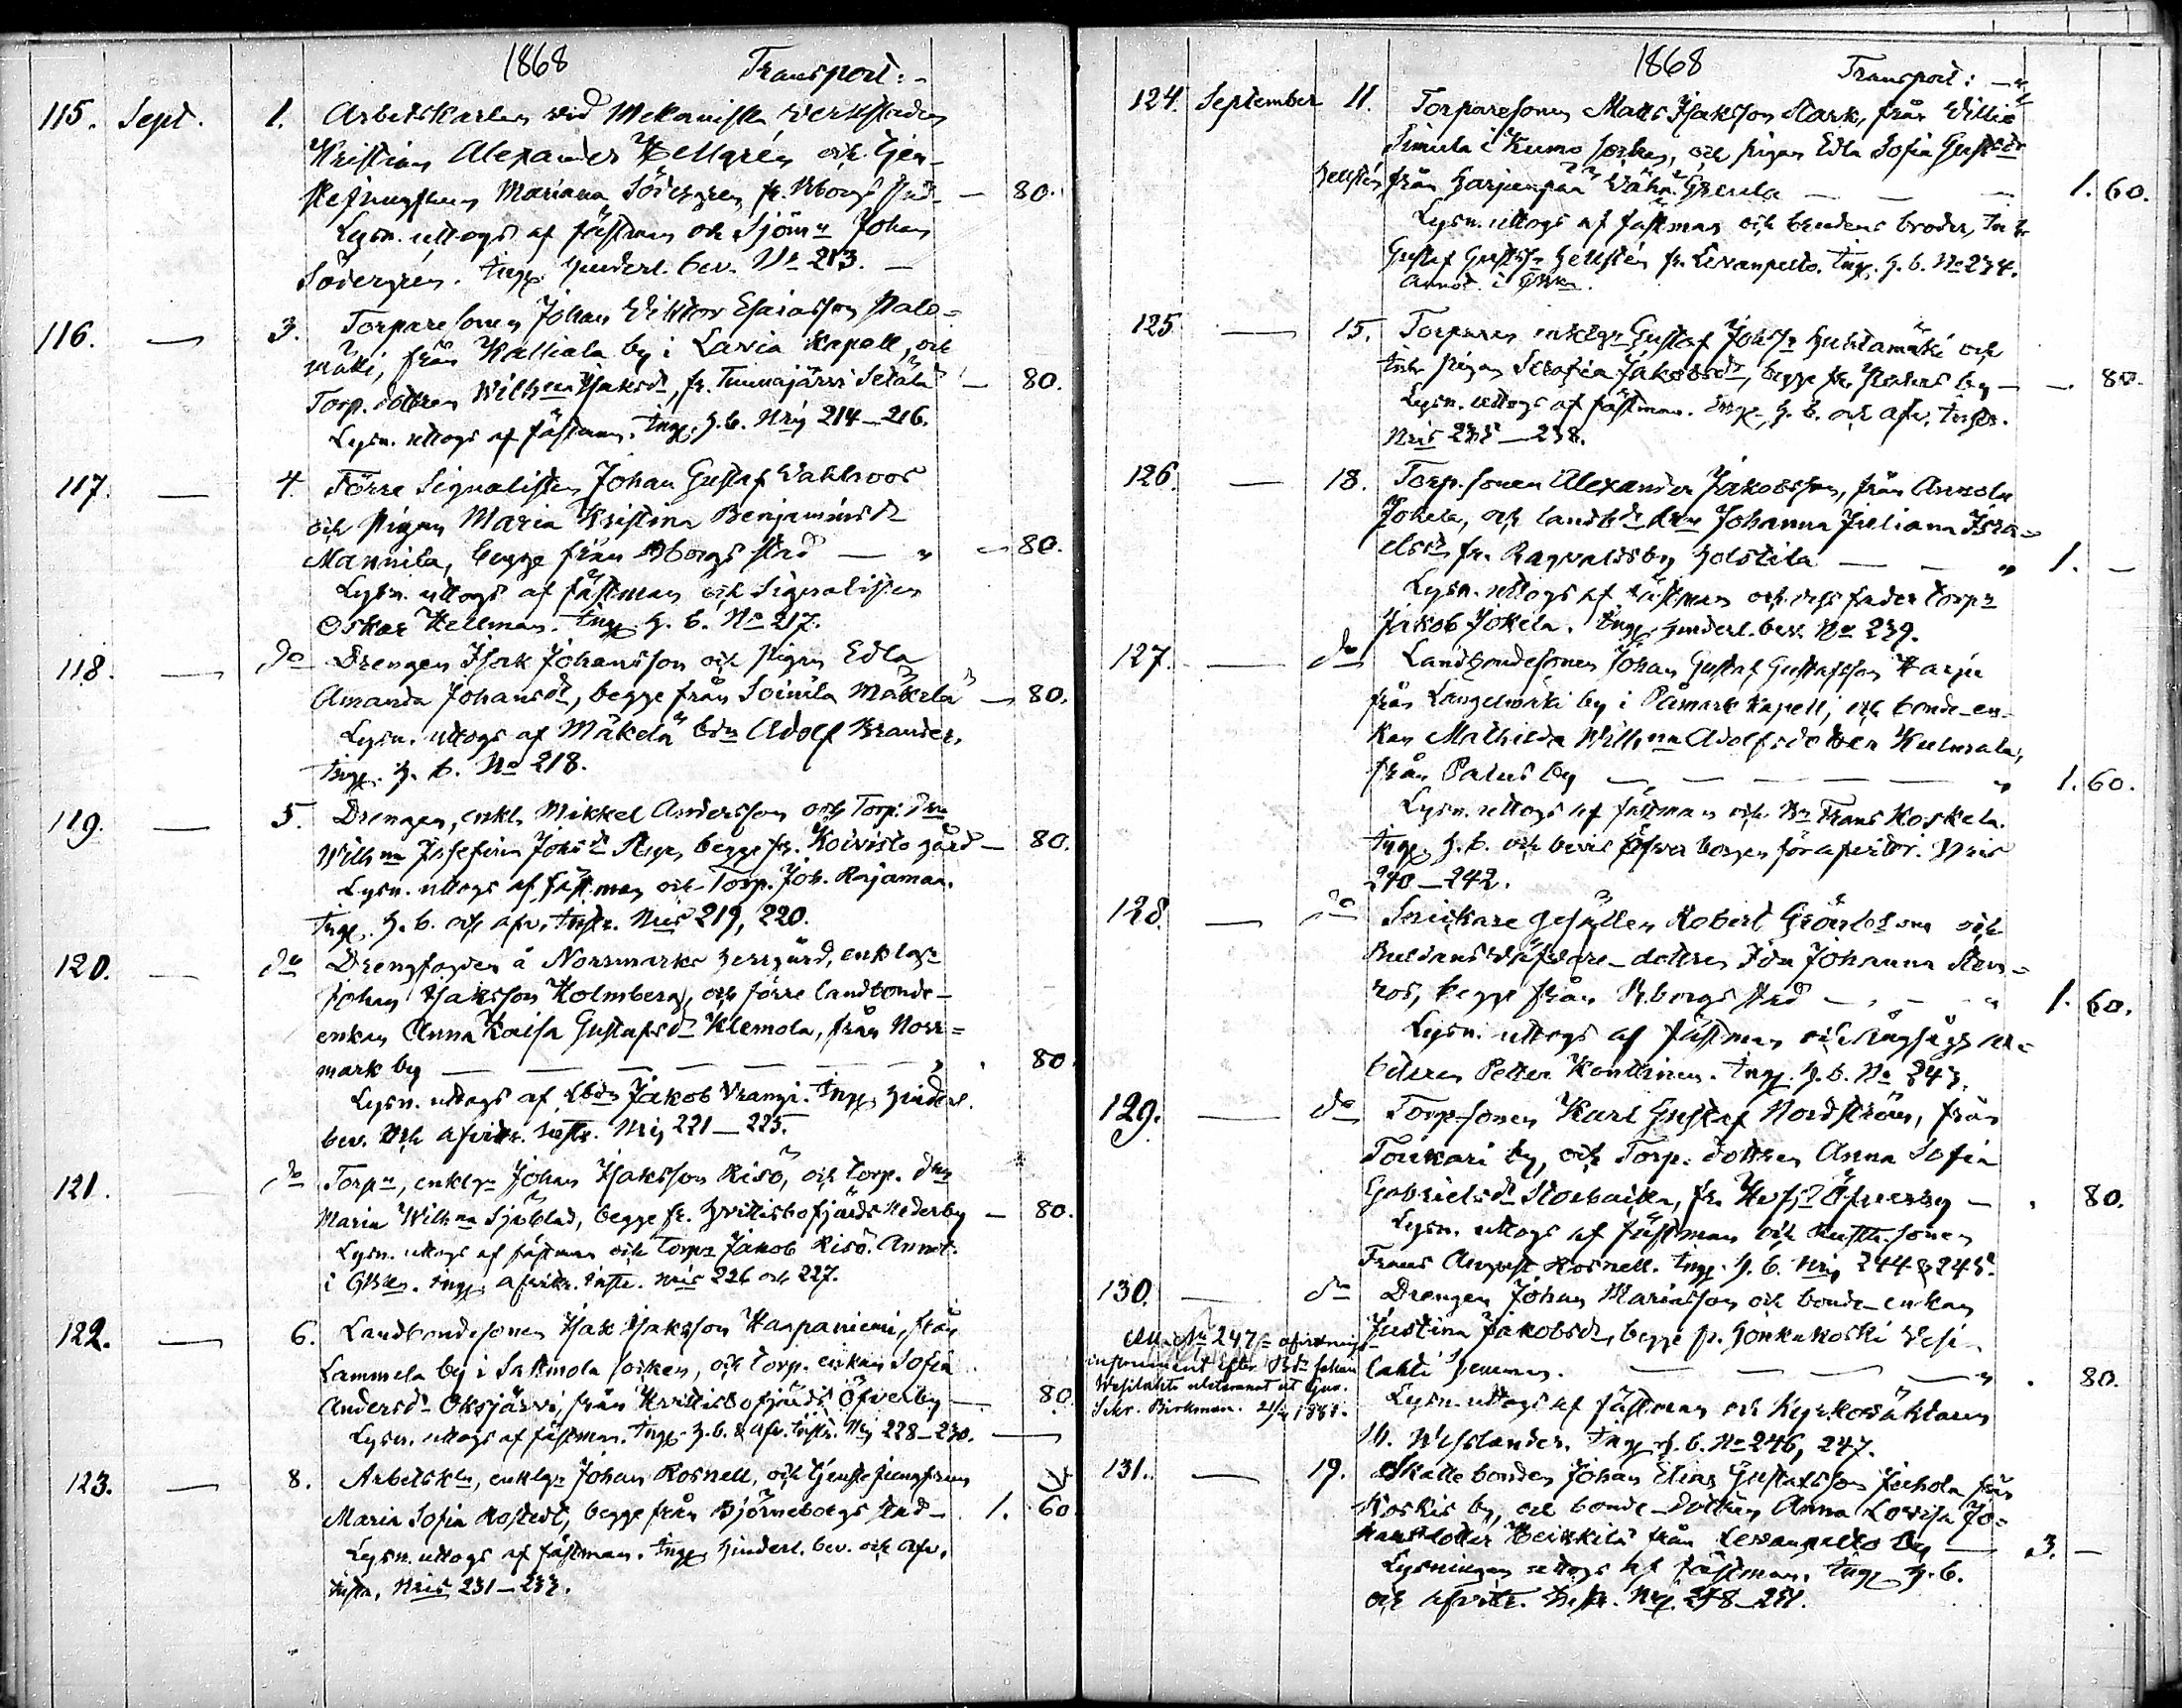 1868 Transport: -
115. Sept. 1. Arbetskarlen vid Mekaniska verkstaden
Kristian Alexander Hellgrén och tjen-
stejungfrun Mariana Södergren fr. Bborgs stad — 80.
Lysn. uttogs af fästman och Sjöm:n Johan
Södergrén. Ingg. hinderl. bev. No 213. —
116. — 3. Torparesonen Johan Wiktor Esaiasson Palo-
mäki, från Kalliala by i Lavia Kapell, och
Torp. dottren Wilh:na Isaksd:r, fr. Tuunajärvi Setälä — 80.
Lysn. uttogs af fästman. Ingg. h. b. N:ris 214–216.
117. — 4. Förre Signalisten Johan Gustaf Wahlroos
och pigan Maria Kristina Benjaminsd:r
Mannila, begge från Bborgs stad — " — 80.
Lysn. uttogs af fästman och Signalisten
Oskar Hellman. Ingg. h. b. No 217.
118. — do Drengen Isak Johansson och pigan Edla
Amanda Johansd:r, begge från Soinila Mäkelä — 80.
Lysn. uttogs af Mäkelä bd:n Adolf Brander.
Ingg. h. b. No 218.
119. — 5. Drengen, enkl. Mikkel Andersson och Torp. d:rn
Wilh:na Josefina Johsd:r, begge fr. Koivisto gård — 80.
Lysn. uttogs af fästman och Torp. Joh. Rajamaa.
Ingg. h. b. och afv. instr. N:ris 219, 220.
120. — do Drengfogden å Norrmarks herrgård, enkl:gn
Johan Isaksson Holmberg, och förre landbonde-
enkan Anna Kaisa Gustafsd:r Klemola, från Norr-
mark by — — — — — — " . 80.
Lysn. uttogs af Lbd:n Jakob Vrangi. Ingg. hinderl.
bev. och afvittr. instr. N:ris 221–225.
121. — do Torp:n, enkl:gn Johan Isaksson Risö, och torp. d:rn
Maria Wilh:na Sjöblad, begge fr. Hvittisbofjärds Nederby — 80.
Lysn. uttogs af fästman och Torp:n Jakob Risö. Annot.
i GBken. Ingg. afvittr. instr. N:ris 226 och 227.
122. — 6. Landbondesonen Isak Isaksson Karpaniemi, från
Lammela by i Sastmola socken, och torp. enkan Sofia
Andersd:r Oksjärvi, från Hvittisbofjärds Öfverby — 80.
Lysn. uttogs af fästman. Ingg. h. b. & afv. instr. N:ris 228–230. —
123. — 8. Arbetsk:ln, enkl:gn Johan Rosnell, och tjenstejungfrun
Maria Sofia Rostedt, begge från Björneborgs stad — 1. 60.
Lysn. uttogs af fästman. Ingg. hinderl. bev. och afv.
instr. N:ris 231–233.
1868 Transport: — "
124. September 11. Torparesonen Matts Isaksson Stark, från Villiö
Simula i Kumo socken, och pigan Edla Sofia Gustsd:r
Hellstén från Harjunpää Wähä — — 1. 60.
Lysn. uttogs af fästman och brudens broder,
Gustaf Gustss:n Hellstén fr. Levanpelto. Ingg. h. b. No 234.
Annot. i GBken.
125. — 15. Torparen enkl:gn Gustaf Johss:n Huhtamäki och
pigan Serafia Jakobsd:r, begge fr. by — — 80.
Lysn. uttogs af fästman. Ingg. h. b. och afv. instr.
N:ris 235–238.
126. — 18. Torp. sonen Alexander Jakobsson, från Annola
Jokela, och landbd:e d:rn Johanna Juliana Isra-
elsd:r, fr. Ragvaldsby Holstila — — " 1. —
Lysn. uttogs af fästman och dess fader torp:n
Jakob Jokela. Ingg. hinderl. bev. No 239.
127. — do Landbondesonen Johan Gustaf Gustafsson Harju
från Längelmäki by i Påmark kapell, och bonde-en-
kan Mathilda Wilh:na Adolfsdotter Kulmala,
från Palus by — — — — " 1. 60.
Lysn. uttogs af fästman och B:n Frans Koskela.
Ingg. h. b. och bevis öfver borgen för afvittr. N:ris
240–242.
128. — do Snickare gesällen Robert Grönblom och
Buldansväfvare-dottren Ida Johanna Sten-
ros, begge från Bborgs stad — - - " 1. 60.
Lysn. uttogs af fästman och Ångsågs ar-
betaren Petter Konttinen. Ingg. h. b. No 243.
129. — do Torp. sonen Karl Gustaf Nordström, från
Toukari by, och Torp. dottren Anna Sofia
Gabrielsd:r Storbacka, fr. Hvfj:ds Öfverby — . 80.
Lysn. uttogs af fästman och Rusth. sonen
Frans August Rosnell. Ingg. h. b. N:ris 244 & 245.
130. — do Drengen Johan Mariasson och bonde-enkan
Justina Jakobsd:r, begge fr. Gönkakoski Vesi-
lahti hemman. — — — " . 80.
Lysn. uttogs af fästman och kyrkoväktaren
M. Wesslander. Ingg. h. b. No 246, 247.
No 247 = afvittrings-
instrument efter Bd:n Johan
Wesilahti utlemnat åt Guv.
Sekr. Björkman. 21/4 1881.
131. — 19. Skattebonden Johan Elias Gustafsson Juhola från
Koskis by, och bonde-dottren Anna Lovisa Jo-
hansdotter Heikkilä från Levanpelto by — 3. —
Lysningen uttogs af fästman. Ingg. h. b.
och afvittr. instr. N:ris 248–251.